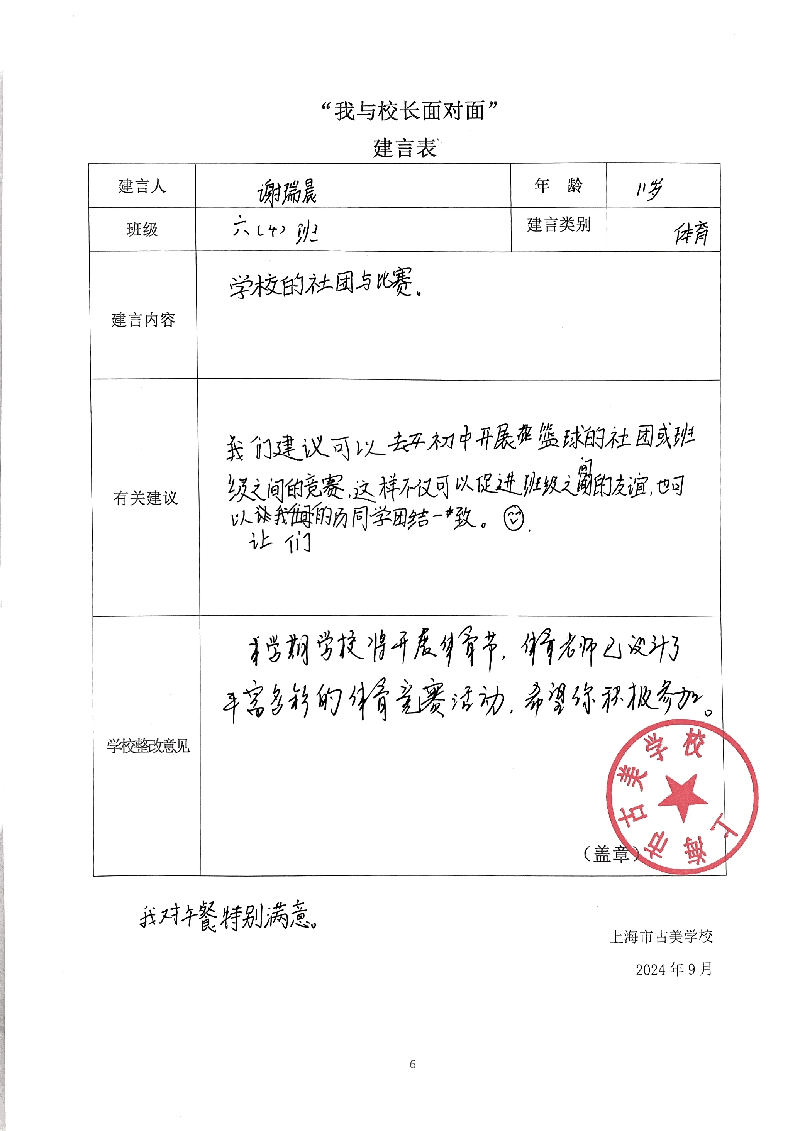 “我与校长面对面”
建言表
建言人 谢瑞晨 年 龄 11岁
班级 六(4)班 建言类别 体育
建言内容 学校的社团与比赛.
有关建议
我们建议可以去开初中开展 篮球的社团或班
级之间的竞赛,这样不仅可以促进班级之间的友谊,也可
以让我们的 同学团结一致。
让 们
学校整改意见
本学期学校将开展体育节,体育老师已设计了
丰富多彩的体育竞赛活动,希望你积极参加。
(盖章)
上海市古美学校
我对午餐特别满意。
上海市古美学校
2024年9月
6